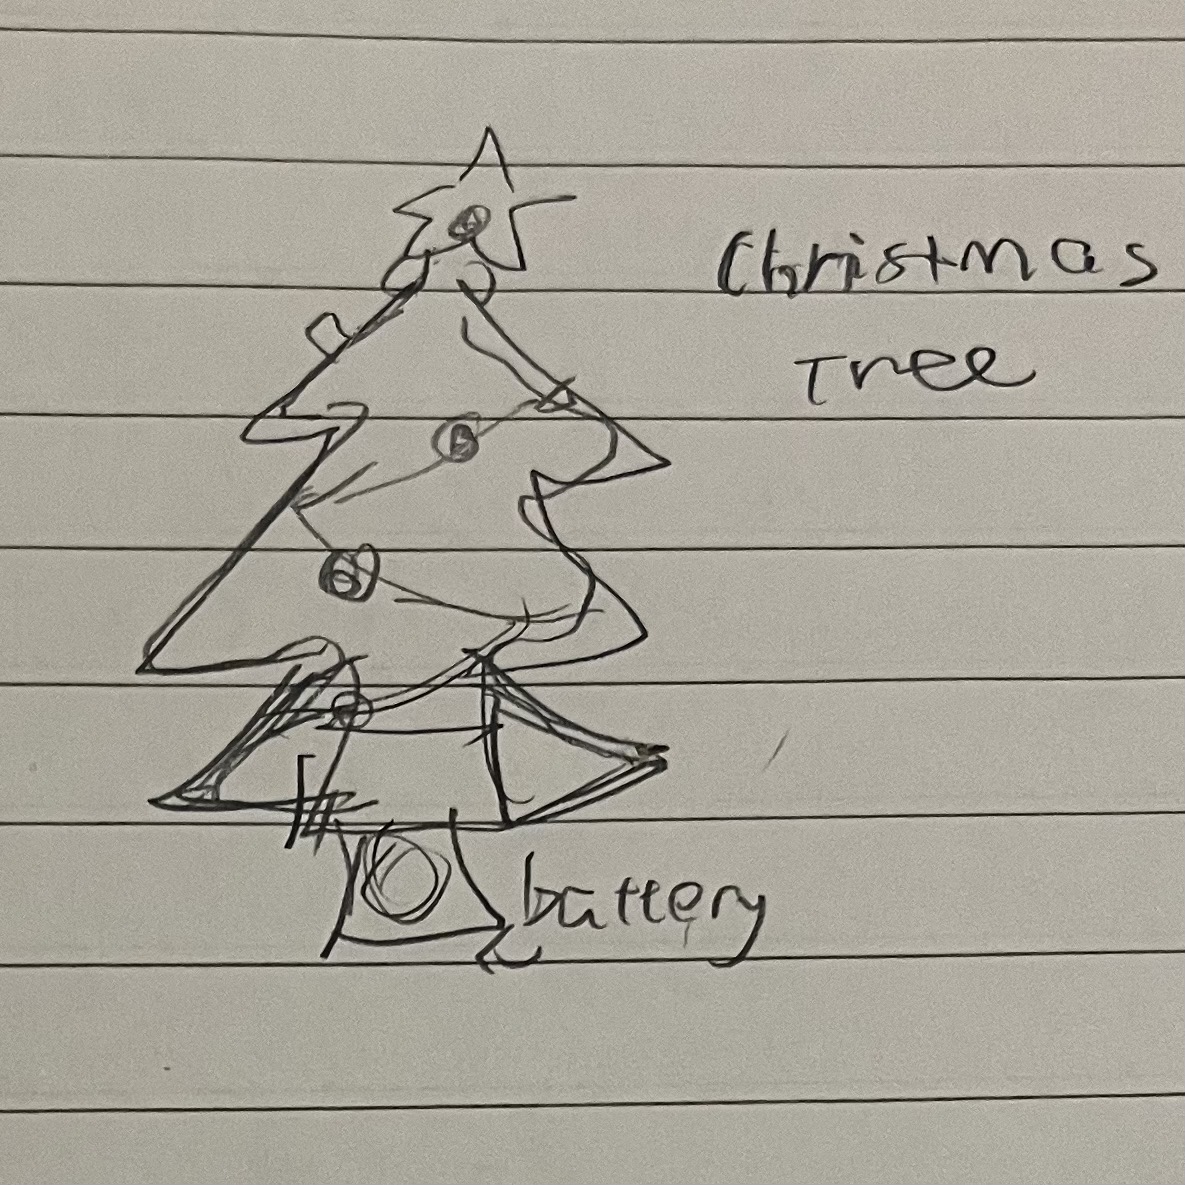 Christmas
Tree
battery